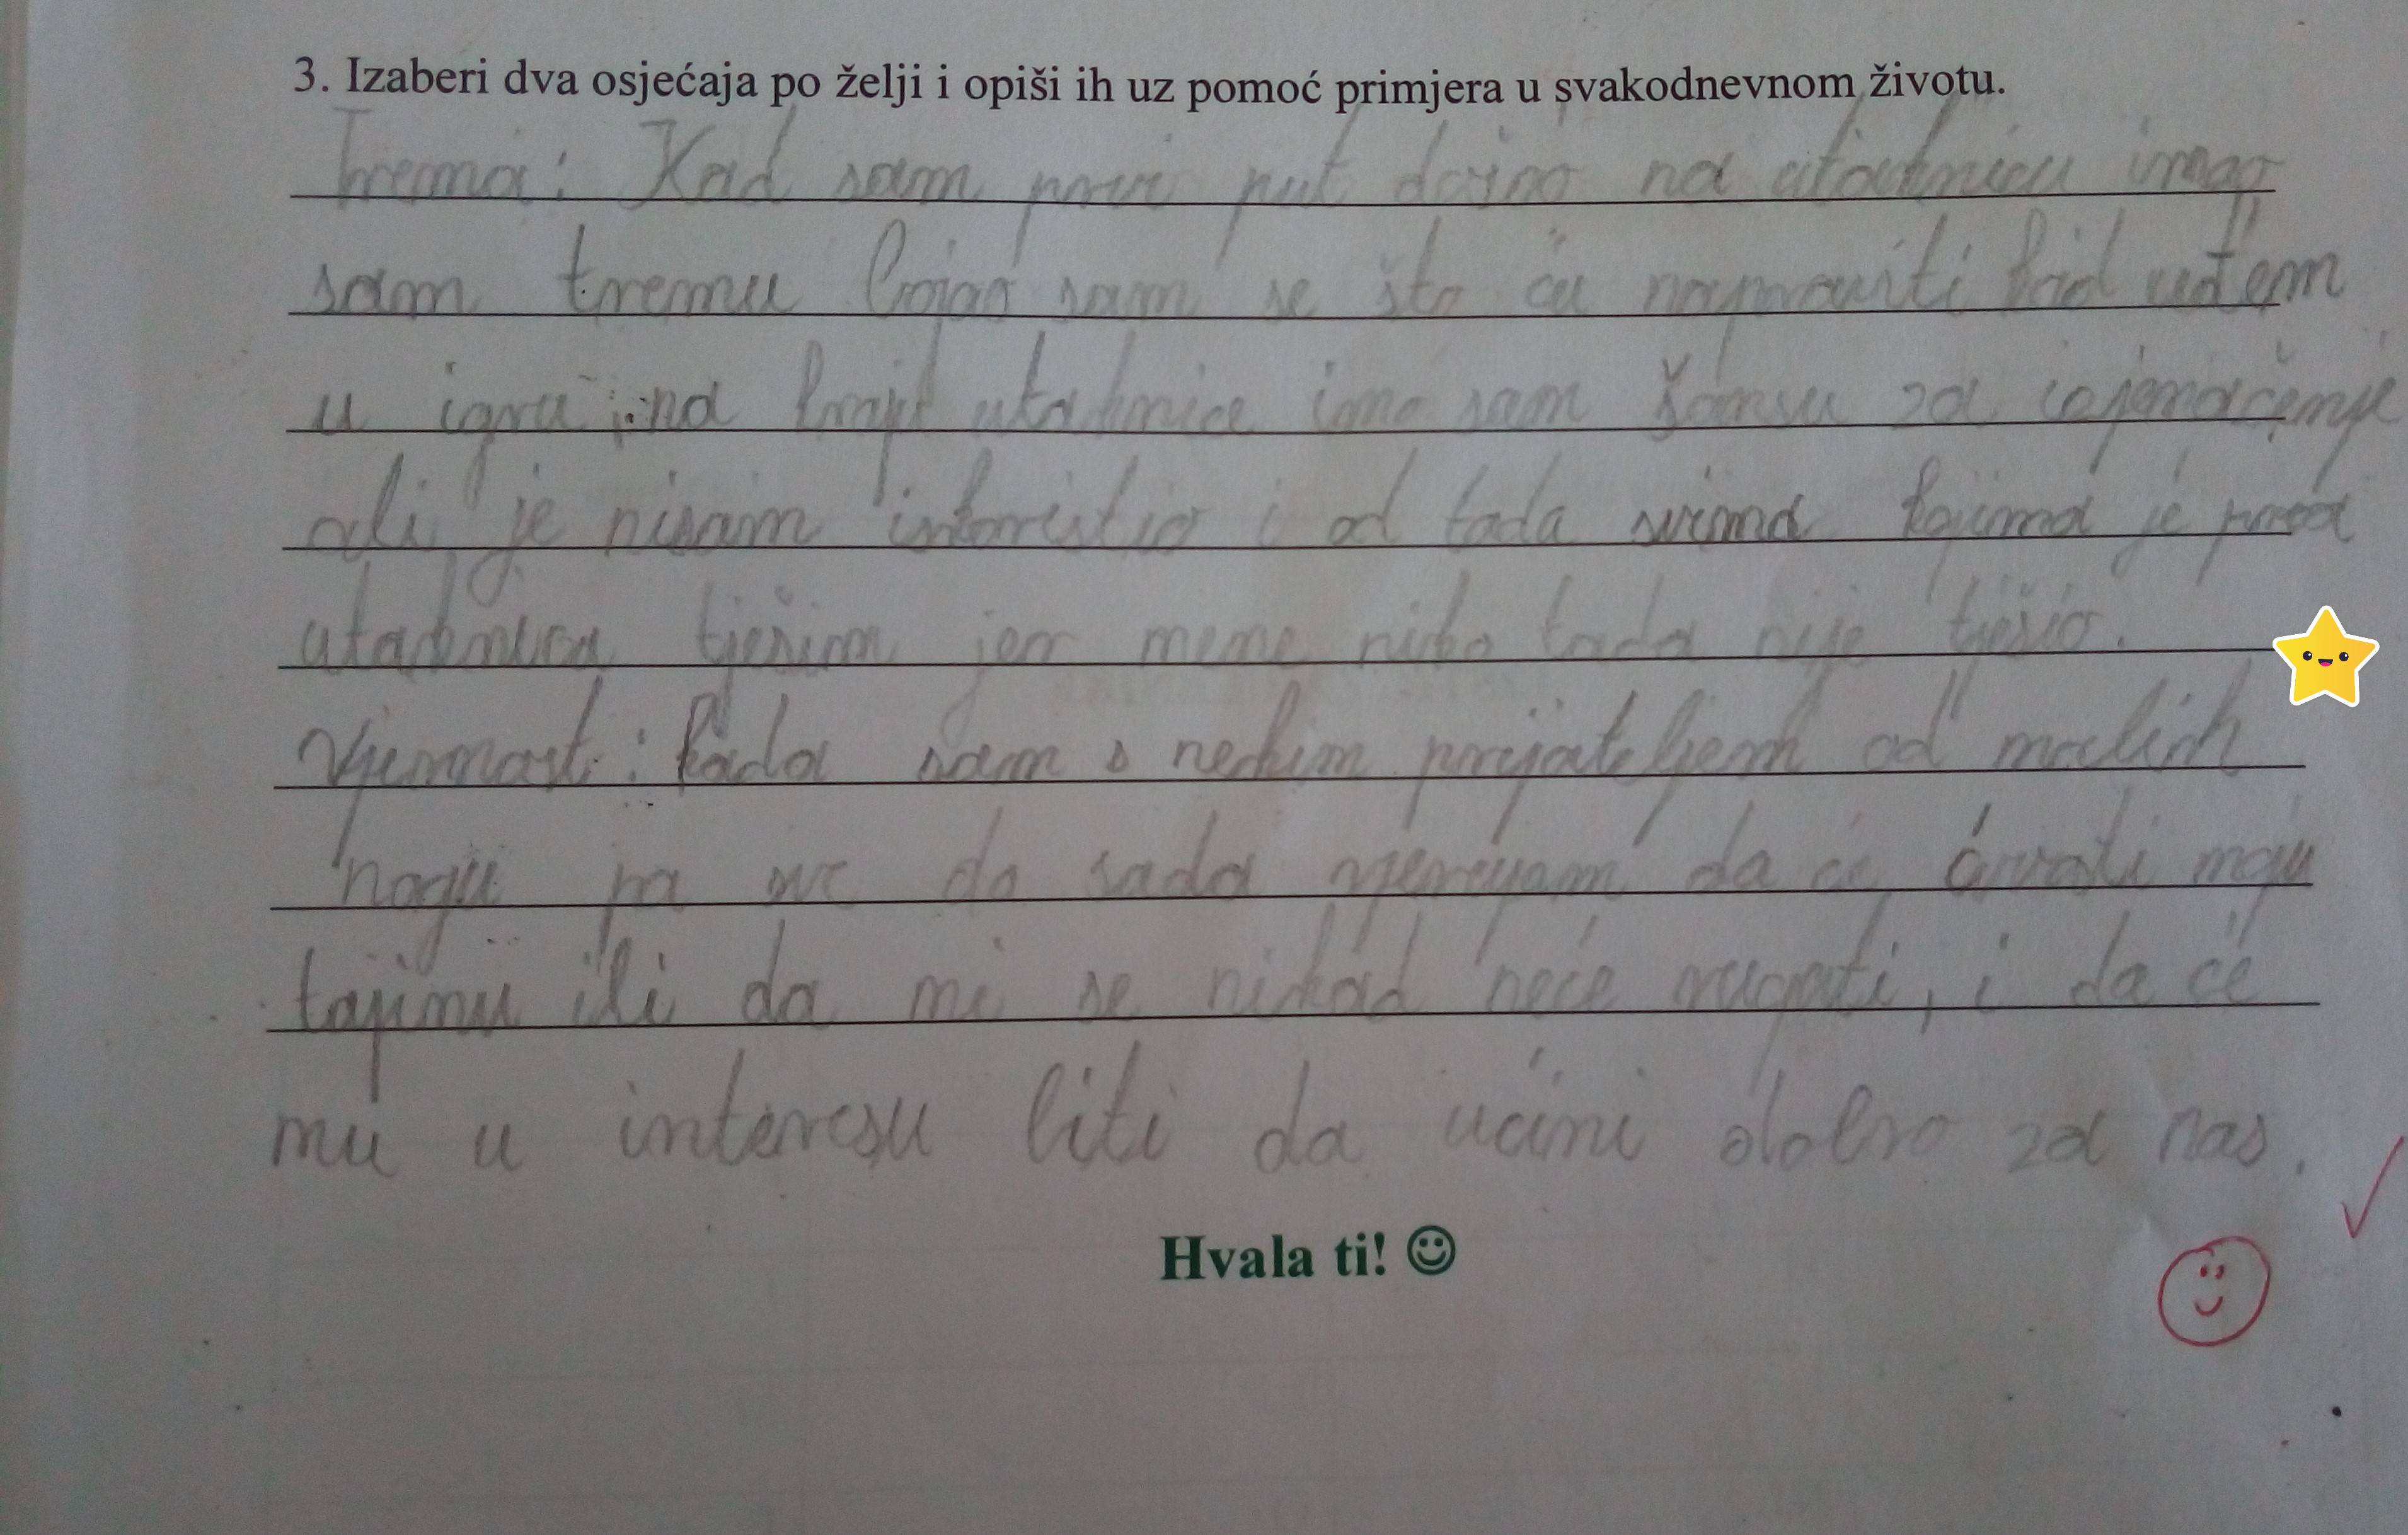 3. Izaberi dva osjećaja po želji i opiši ih uz pomoć primjera u svakodnevnom životu.
Trema: Kad sam prvi put došao na utakmicu imao
sam tremu bojao sam se što ću napraviti kad uđem
u igru, na kraju utakmice imo sam šansu za izjenačenje
ali je nisam iskoristio i od tada svima kojima je prva
utakmica tješim jer mene nitko tada nije tješio.
Vjernost: kada sam s nekim prijateljem od malih
nogu pa sve do sada vjerujem da će čuvati moju
tajnu ili da mi se nikad neće rugati, i da će
mu u interesu biti da učini dobro za nas.
Hvala ti! ☺